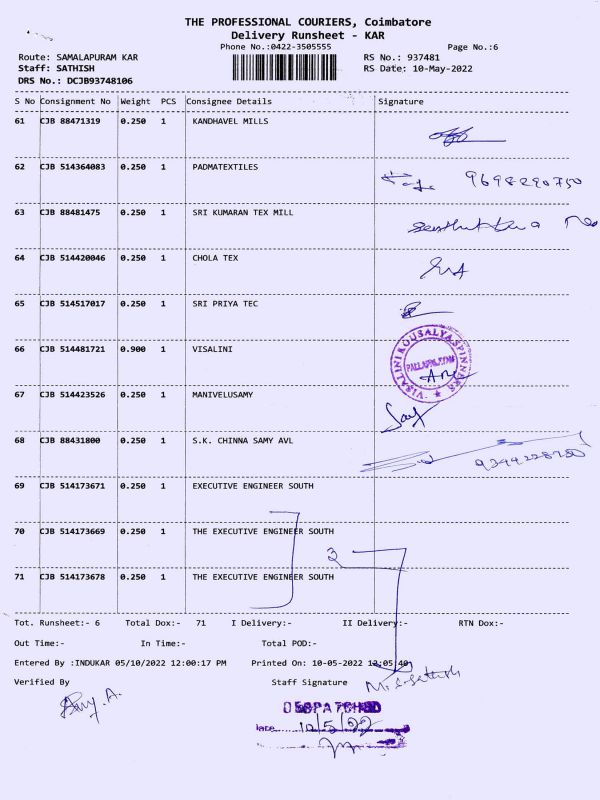 THE PROFESSIONAL COURIERS, Coimbatore
Delivery Runsheet - KAR
Phone No.:0422-3505555
Page No.:6
Route: SAMALAPURAM KAR
RS No.: 937481
Staff: SATHISH
RS Date: 10-May-2022
DRS No.: DCJB93748106
S No Consignment No Weight PCS Consignee Details Signature
61 CJB 88471319 0.250 1 KANDHAVEL MILLS
62 CJB 514364083 0.250 1 PADMATEXTILES 9698290750
63 CJB 88481475 0.250 1 SRI KUMARAN TEX MILL
64 CJB 514420046 0.250 1 CHOLA TEX
65 CJB 514517017 0.250 1 SRI PRIYA TEC
66 CJB 514481721 0.900 1 VISALINI
VISALINI KOUSALYA SPINNERS
67 CJB 514423526 0.250 1 MANIVELUSAMY
68 CJB 88431800 0.250 1 S.K. CHINNA SAMY AVL
69 CJB 514173671 0.250 1 EXECUTIVE ENGINEER SOUTH
70 CJB 514173669 0.250 1 THE EXECUTIVE ENGINEER SOUTH
3
71 CJB 514173678 0.250 1 THE EXECUTIVE ENGINEER SOUTH
Tot. Runsheet:- 6 Total Dox:- 71 I Delivery:- II Delivery:- RTN Dox:-
Out Time:- In Time:- Total POD:-
Entered By :INDUKAR 05/10/2022 12:00:17 PM Printed On: 10-05-2022 12:05:40
Verified By Staff Signature
10/5/22